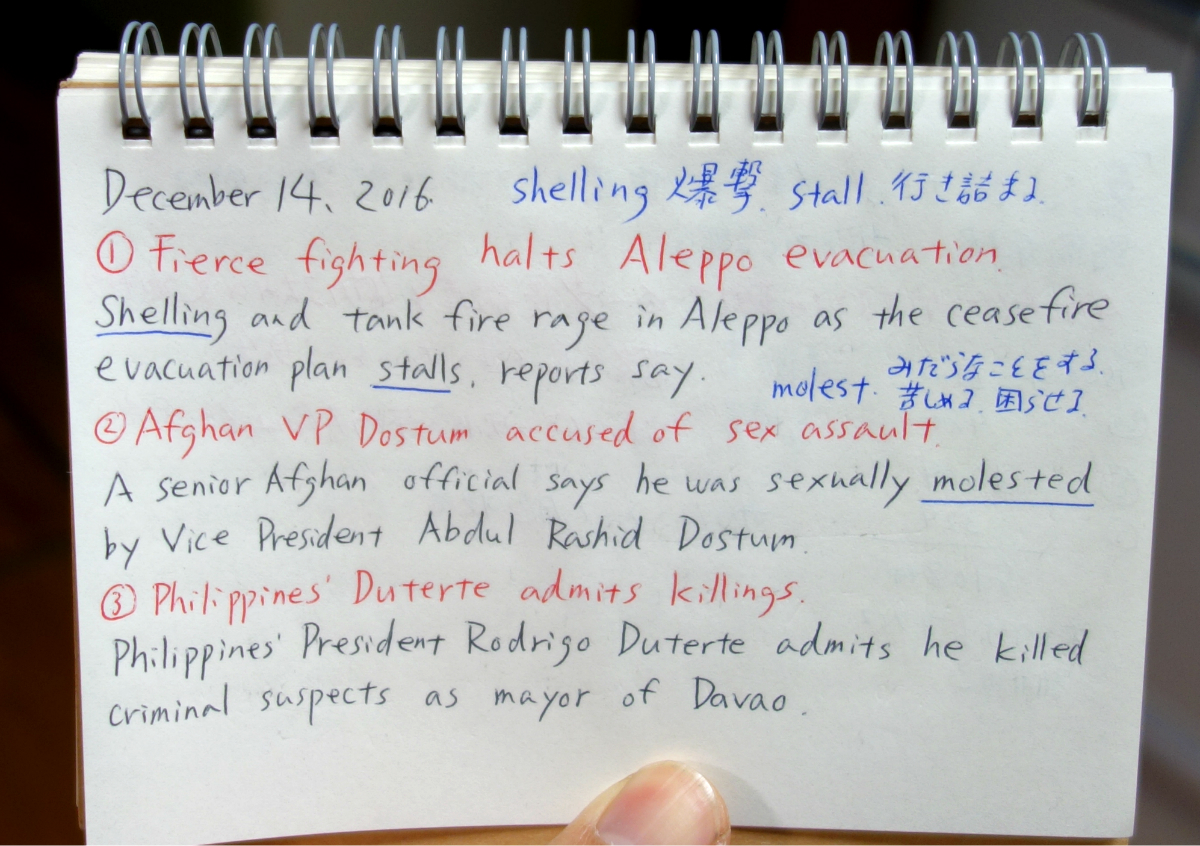 December 14、2016. shelling 爆撃. stall. 行き詰まる.
① Fierce fighting halts Aleppo evacuation.
Shelling and tank fire rage in Aleppo as the ceasefire
evacuation plan stalls, reports say.
molest. みだらなことをする.
苦しめる. 困らせる.
② Afghan VP Dostum accused of sex assault.
A senior Afghan official says he was sexually molested
by Vice President Abdul Rashid Dostum.
③ Philippines' Duterte admits killings.
Philippines' President Rodrigo Duterte admits he killed
criminal suspects as mayor of Davao.